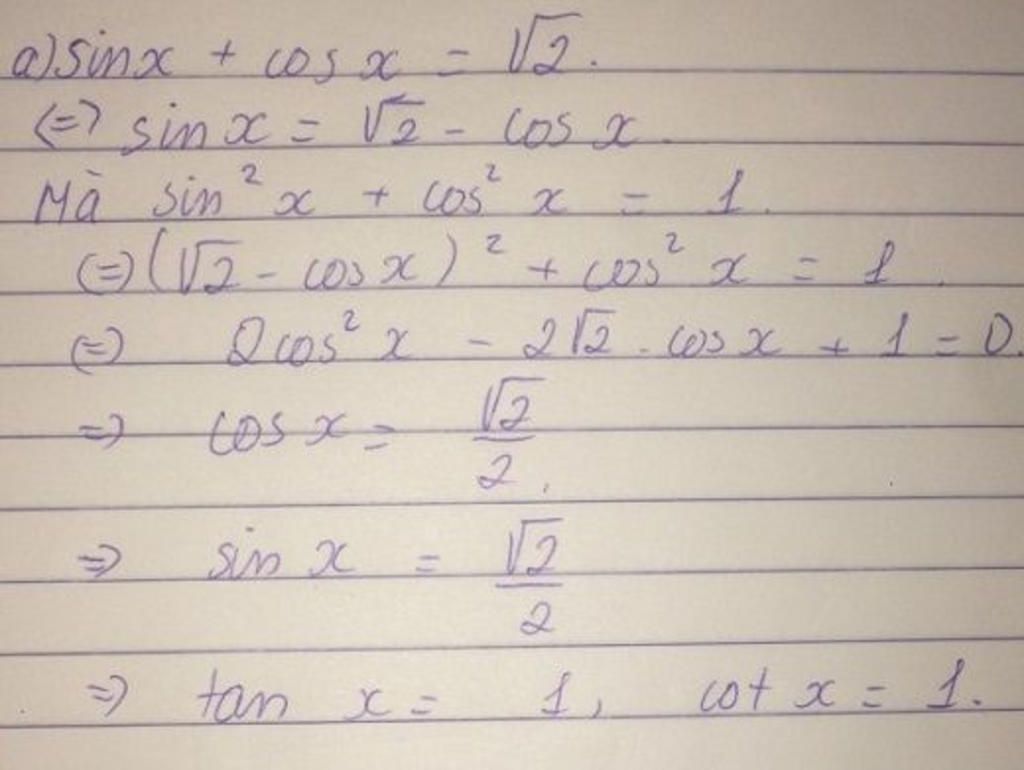 a) sin x + cos x = √2.
(=) sin x = √2 - cos x.
Mà sin² x + cos² x = 1.
(=) (√2 - cos x)² + cos² x = 1.
(=) 2cos² x - 2√2 . cos x + 1 = 0.
=) cos x = √2/2.
=) sin x = √2/2
=) tan x = 1, cot x = 1.